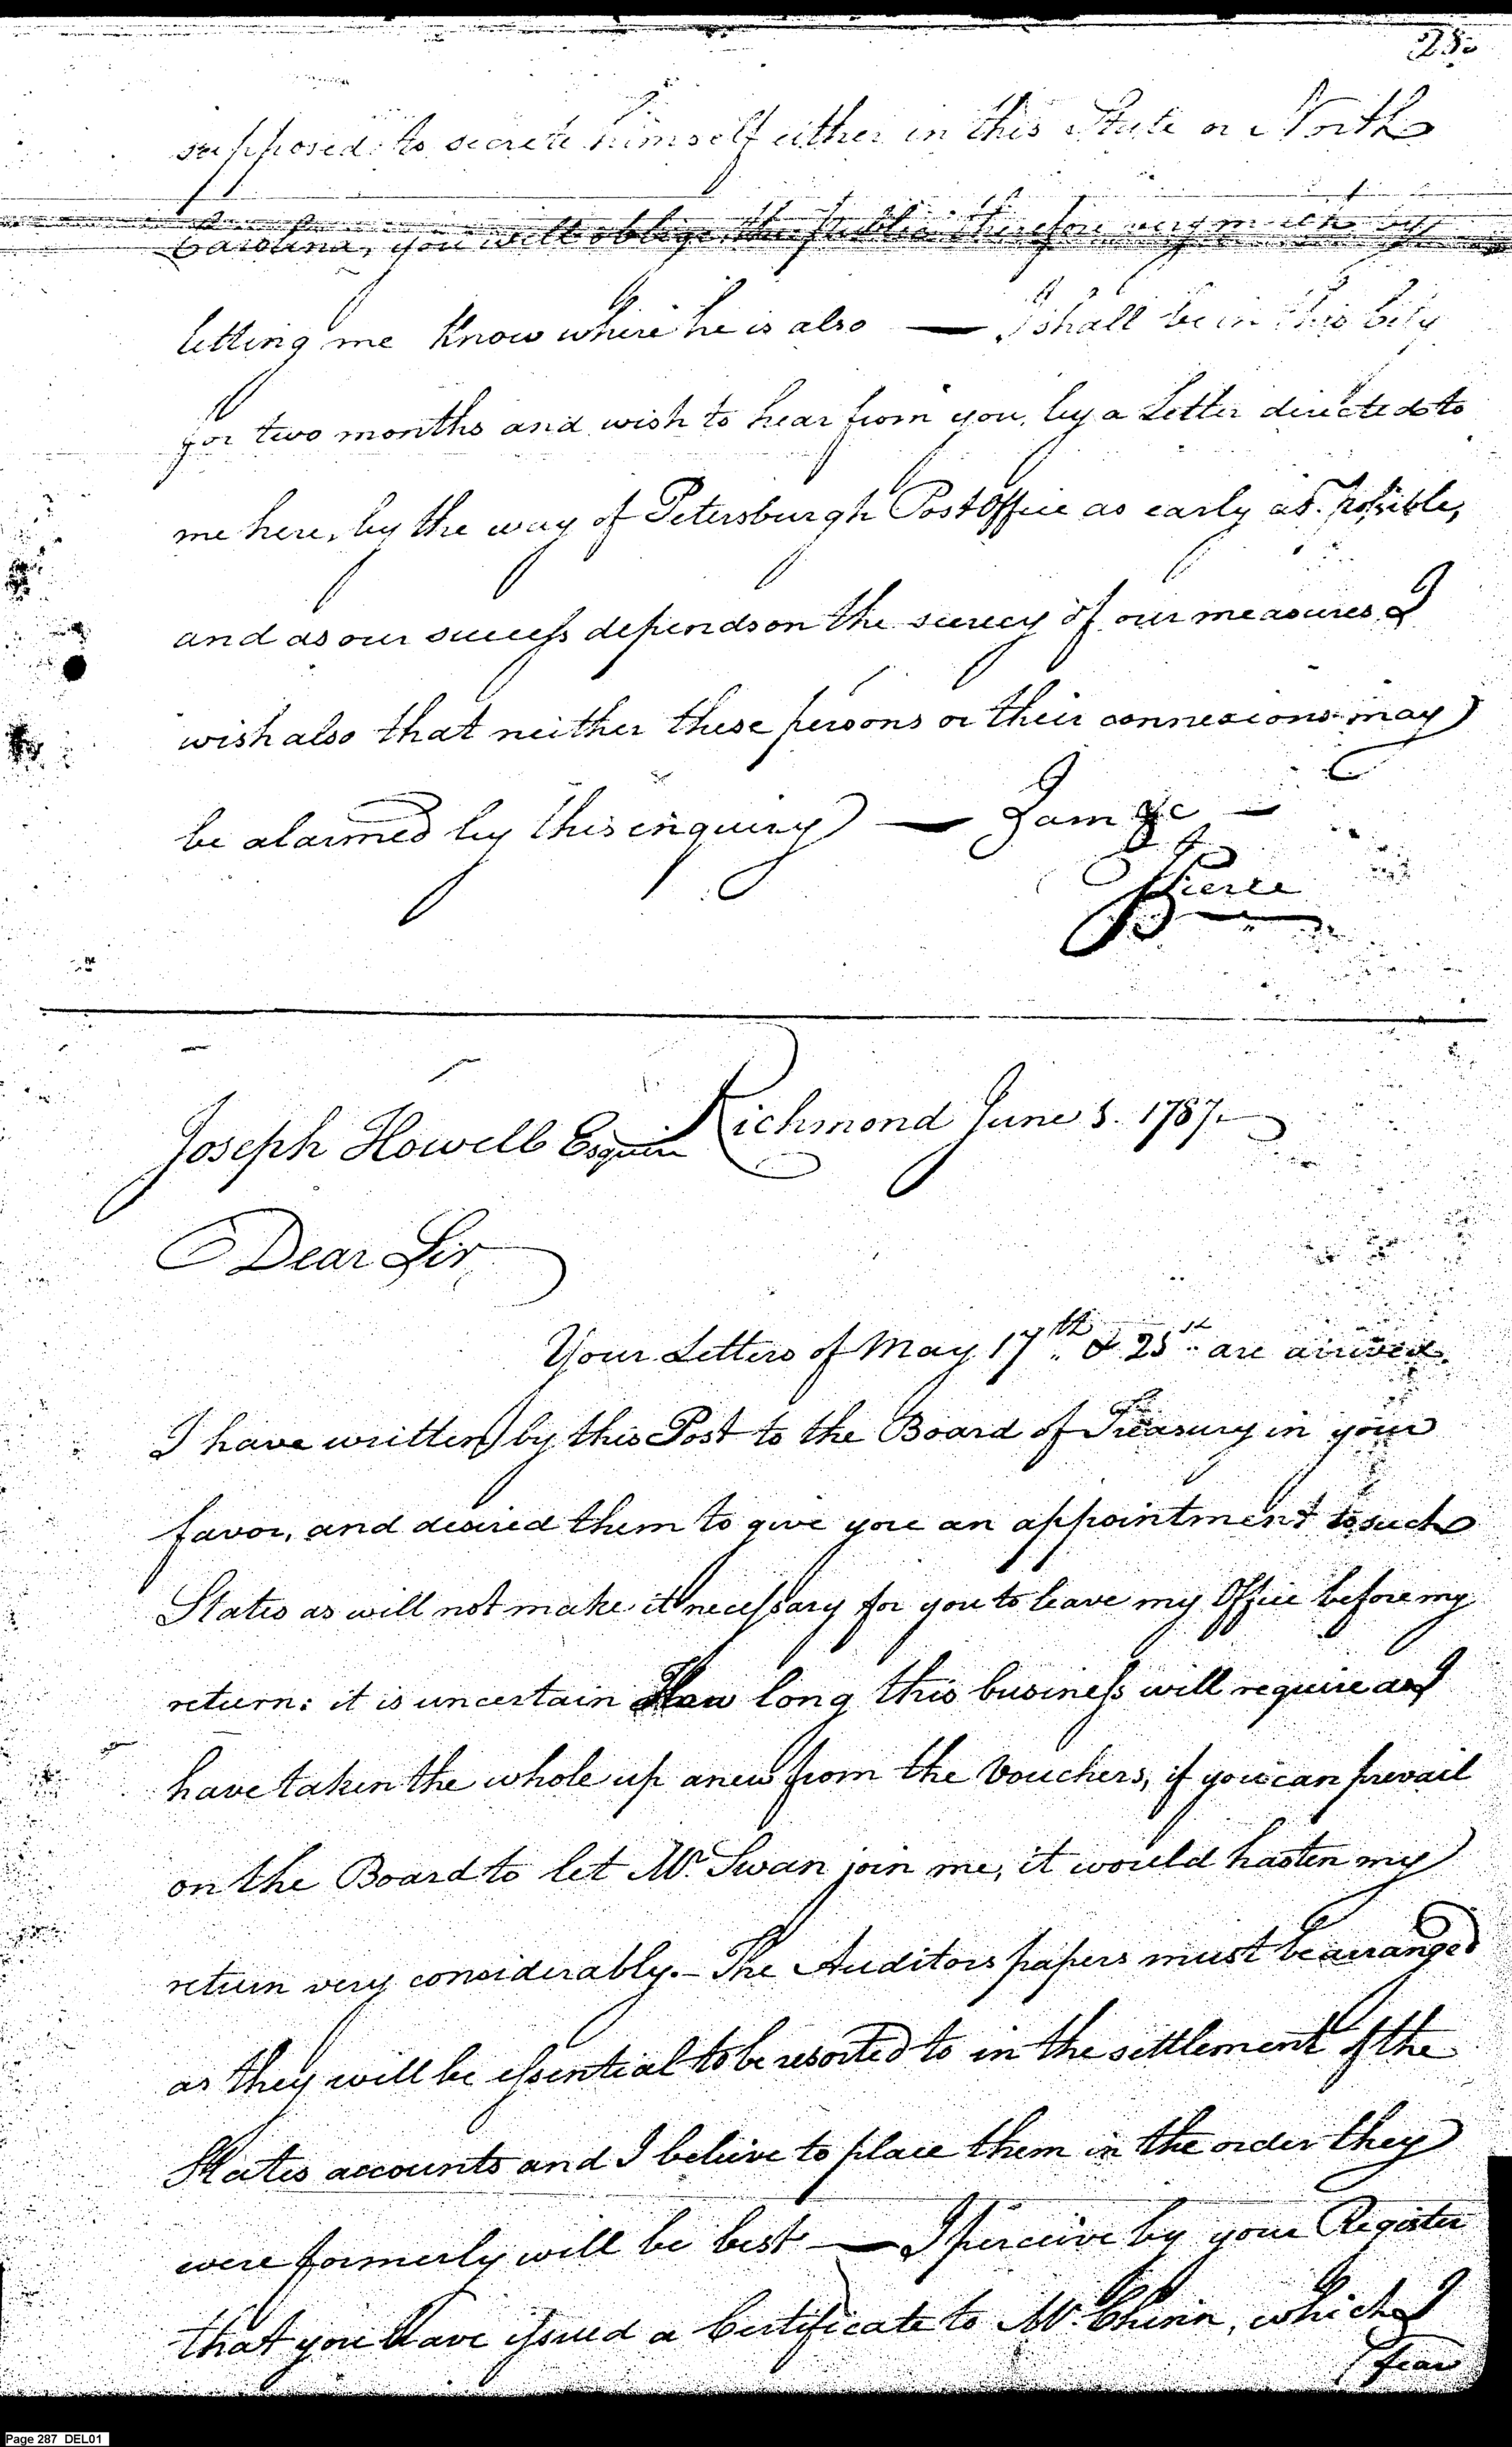 supposed to secrete himself either in this State or North
Carolina, you will oblige the Public therefore very much by
letting me Know where he is also — I shall be in this City
for two months and wish to hear from you, by a Letter directed to
me here, by the way of Petersburgh Post Office as early as possible,
and as our success depends on the secrecy of our measures I
wish also that neither these persons or their connexions may
be alarmed by this enquiry — I am &c —
Pierce
Joseph Howell Esquire Richmond June 5. 1787.
Dear Sir
Your Letters of May 17th & 25th are arrived.
I have written by this Post to the Board of Treasury in your
favor, and desired them to give you an appointment to such
States as will not make it necessary for you to leave my Office before my
return: it is uncertain How long this business will require as I
have taken the whole up anew from the Vouchers, if you can prevail
on the Board to let Mr. Swan join me, it would hasten my
return very considerably. – The Auditors papers must be arranged
as they will be essential to be resorted to in the settlement of the
States accounts and I believe to place them in the order they
were formerly will be best — I perceive by your Register
that you have issued a Certificate to Mr. Chinn, which I
fear
Page 287 DEL01